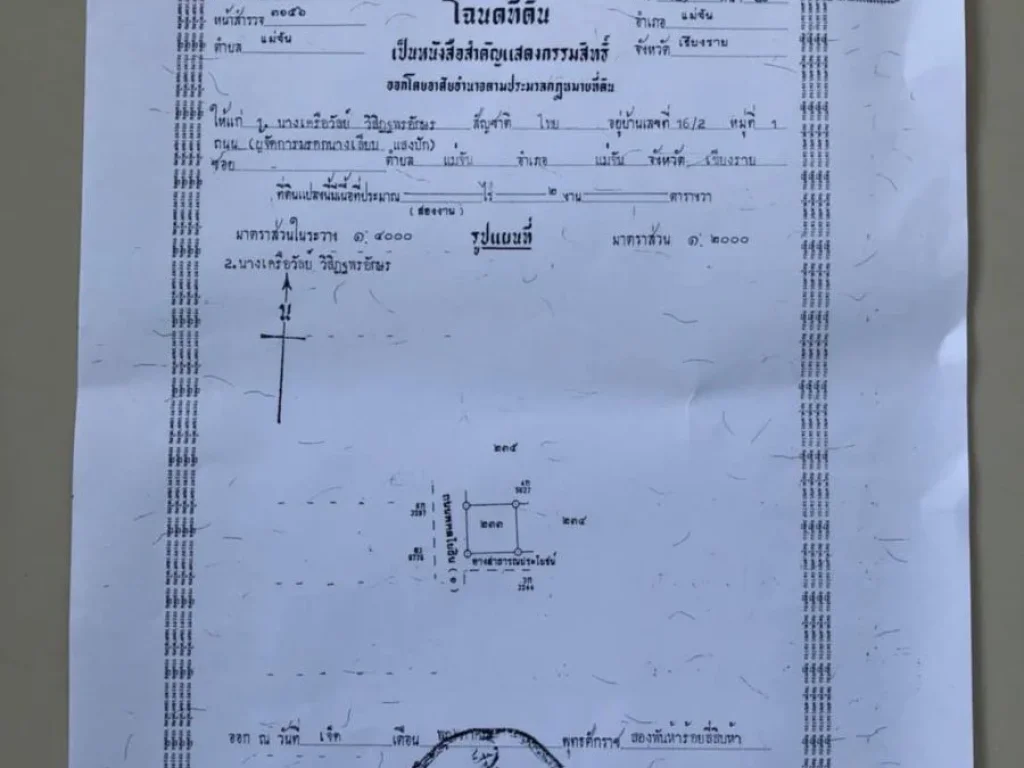 หน้าสำรวจ ๓๑๕๖
โฉนดที่ดิน
อำเภอ แม่จัน
ตำบล แม่จัน
เป็นหนังสือสำคัญแสดงกรรมสิทธิ์
จังหวัด เชียงราย
ออกโดยอาศัยอำนาจตามประมวลกฎหมายที่ดิน
ให้แก่ ๑. นางเครือวัลย์ วิสิฎฐพรอักษร สัญชาติ ไทย อยู่บ้านเลขที่ 16/2 หมู่ที่ 1
ถนน (ผู้จัดการมรดกนางเอียบ แสงปัก)
ซอย ตำบล แม่จัน อำเภอ แม่จัน จังหวัด เชียงราย
ที่ดินแปลงนี้มีเนื้อที่ประมาณ ไร่ ๒ งาน ตารางวา
(สองงาน)
มาตราส่วนในระวาง ๑: ๔๐๐๐ รูปแผนที่ มาตราส่วน ๑: ๒๐๐๐
๒.นางเครือวัลย์ วิสิฎฐพรอักษร
น
๒๓๕
5627
3287
๒๓๓
๒๓๔
ถนนพหลโยธิน (๑)
6776
ทางสาธารณประโยชน์
3244
ออก ณ วันที่ เจ็ด เดือน พุทธศักราช สองพันห้าร้อยยี่สิบห้า